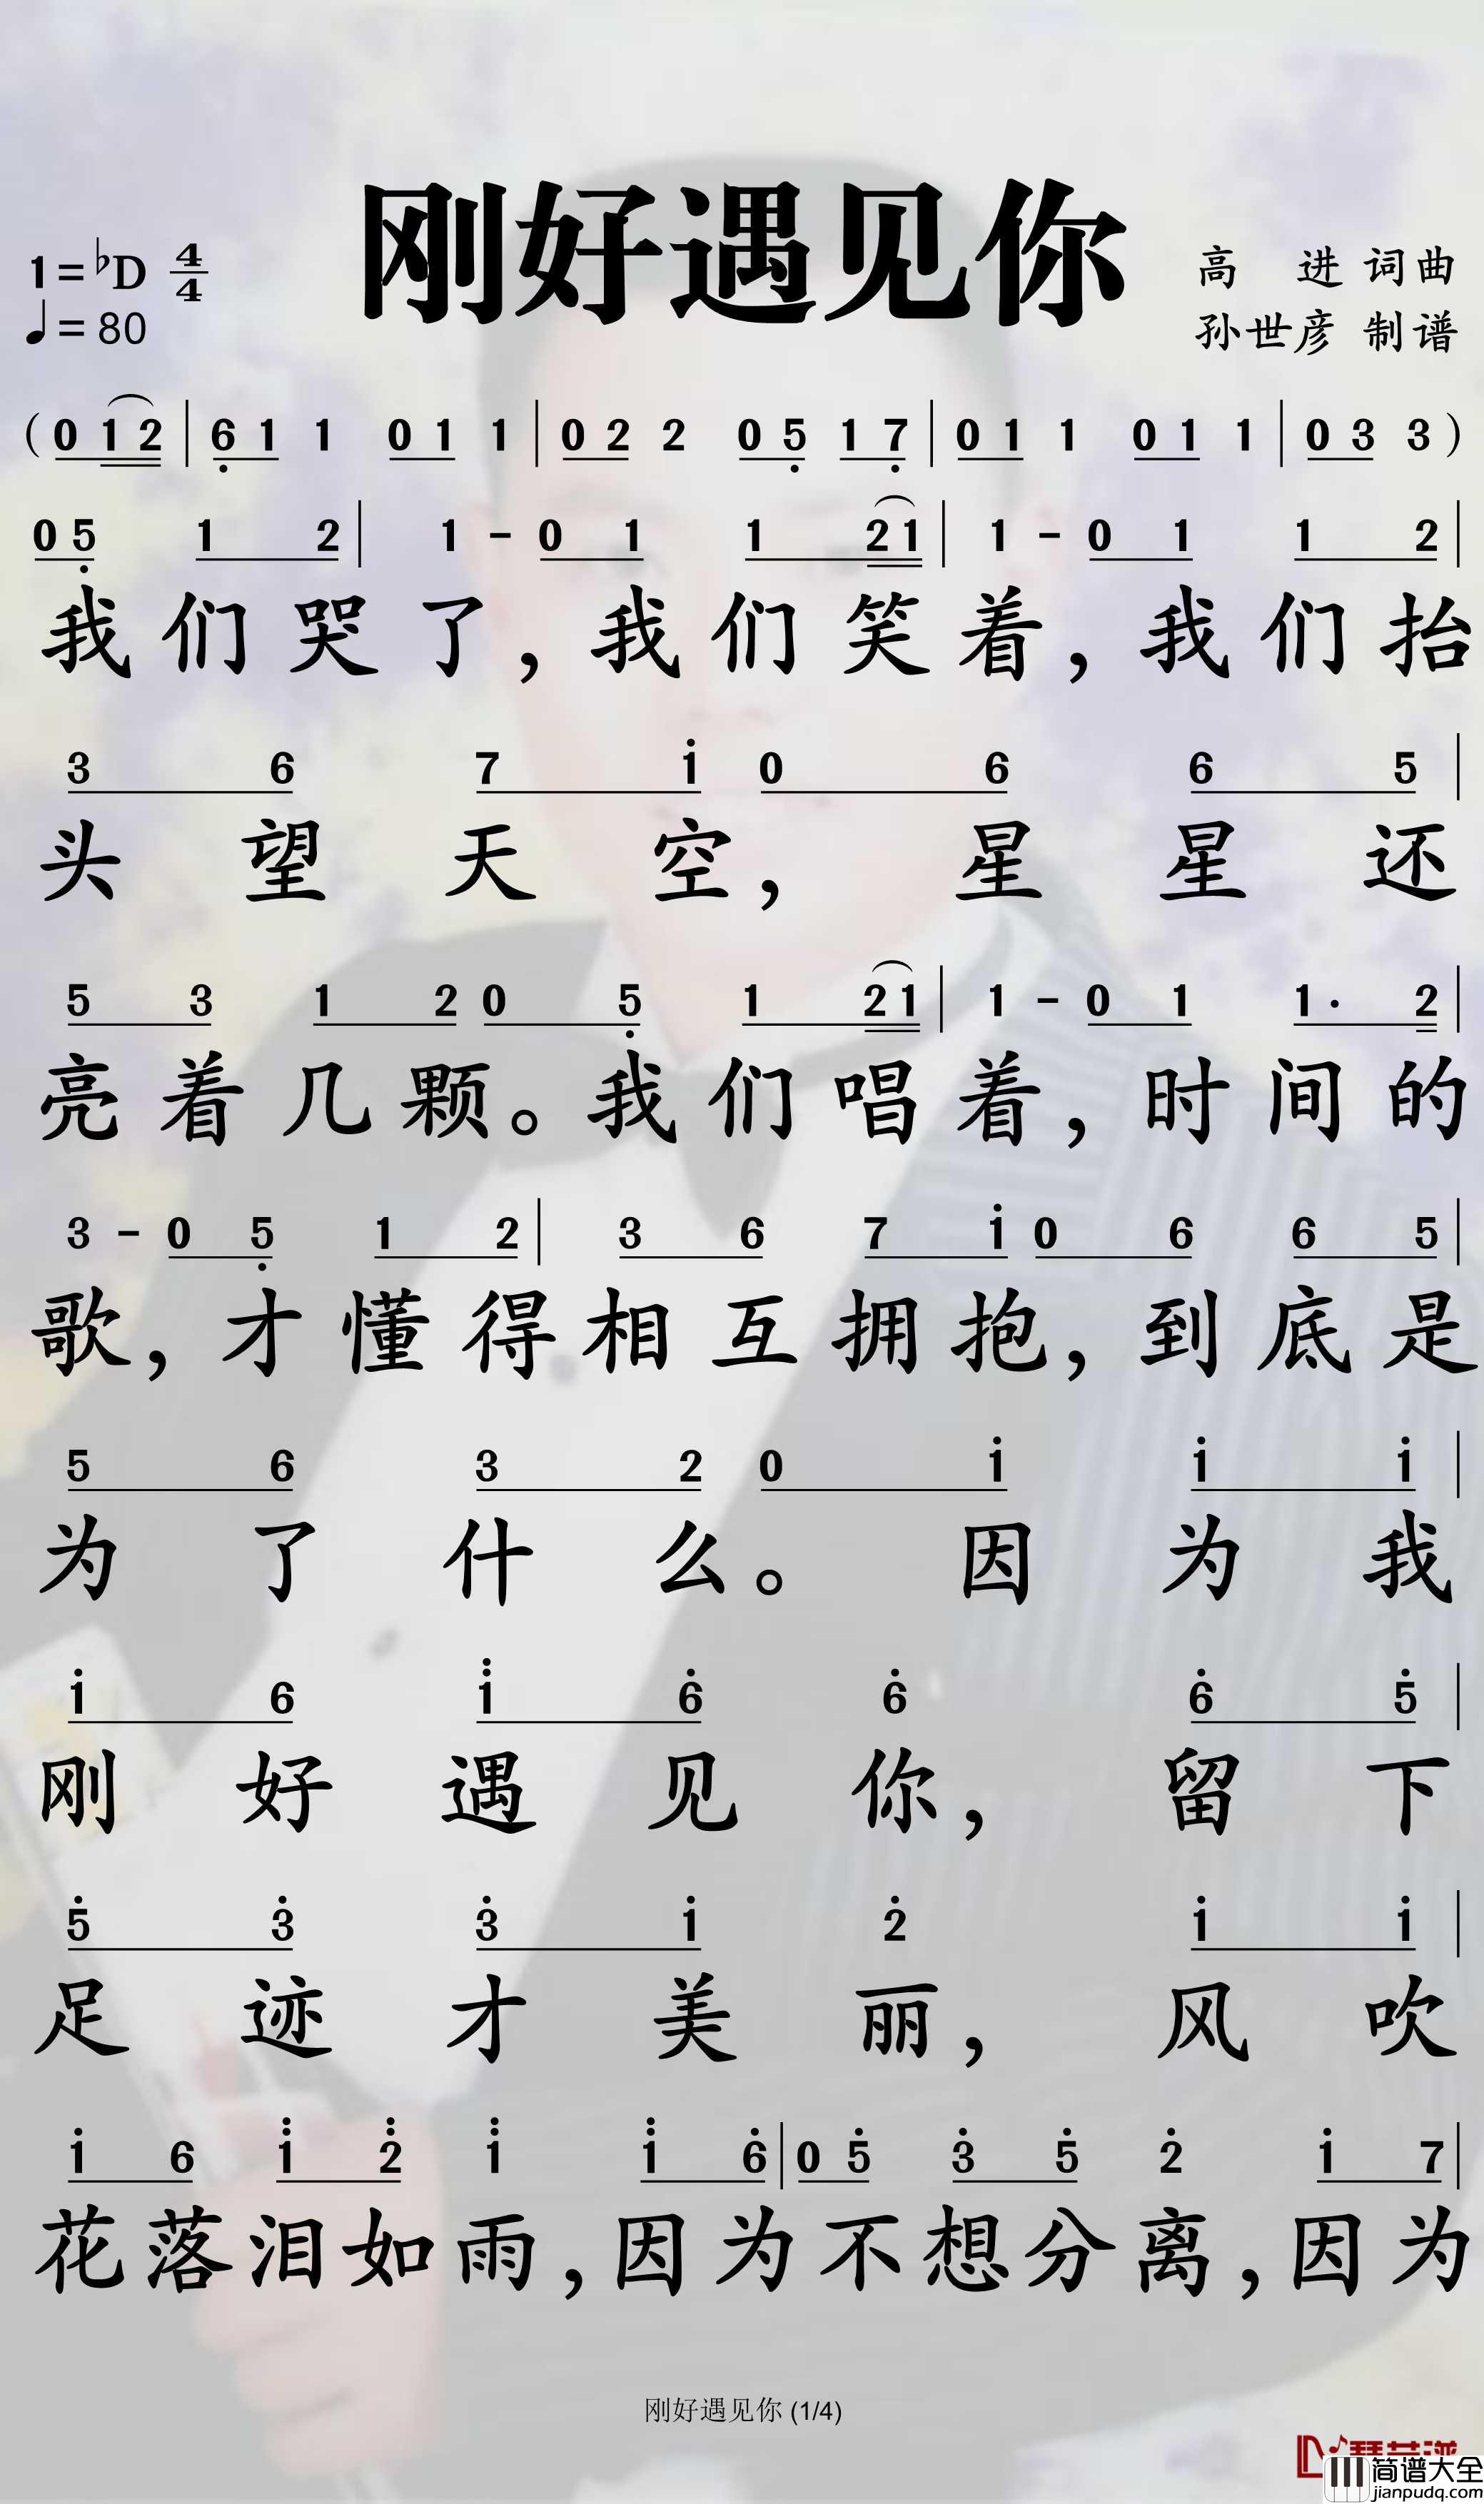 刚好遇见你
1=♭D 4/4
♩=80
高 进 词曲
孙世彦 制谱
(0 1 2 | 6̣ 1 1 0 1 1 | 0 2 2 0 5̣ 1 7̣ | 0 1 1 0 1 1 | 0 3 3)
0 5̣ 1 2 | 1 - 0 1 1 2 1 | 1 - 0 1 1 2 |
我们哭了，我们笑着，我们抬
3 6 7 1̇ 0 6 6 5 |
头望天空，星星还
5 3 1 2 0 5̣ 1 2 1 | 1 - 0 1 1· 2 |
亮着几颗。我们唱着，时间的
3 - 0 5̣ 1 2 | 3 6 7 1̇ 0 6 6 5 |
歌，才懂得相互拥抱，到底是
5 6 3 2 0 1̇ 1̇ 1̇ |
为了什么。因为我
1̇ 6 1̈ 6̇ 6̇ 6̇ 5̇ |
刚好遇见你，留下
5̇ 3̇ 3̇ 1̇ 2̇ 1̇ 1̇ |
足迹才美丽，风吹
1̇ 6 1̈ 2̈ 1̈ 1̈ 6̇ | 0 5̇ 3̇ 5̇ 2̇ 1̇ 7 |
花落泪如雨，因为不想分离，因为
刚好遇见你 (1/4)
简谱大全
jianpudq.com